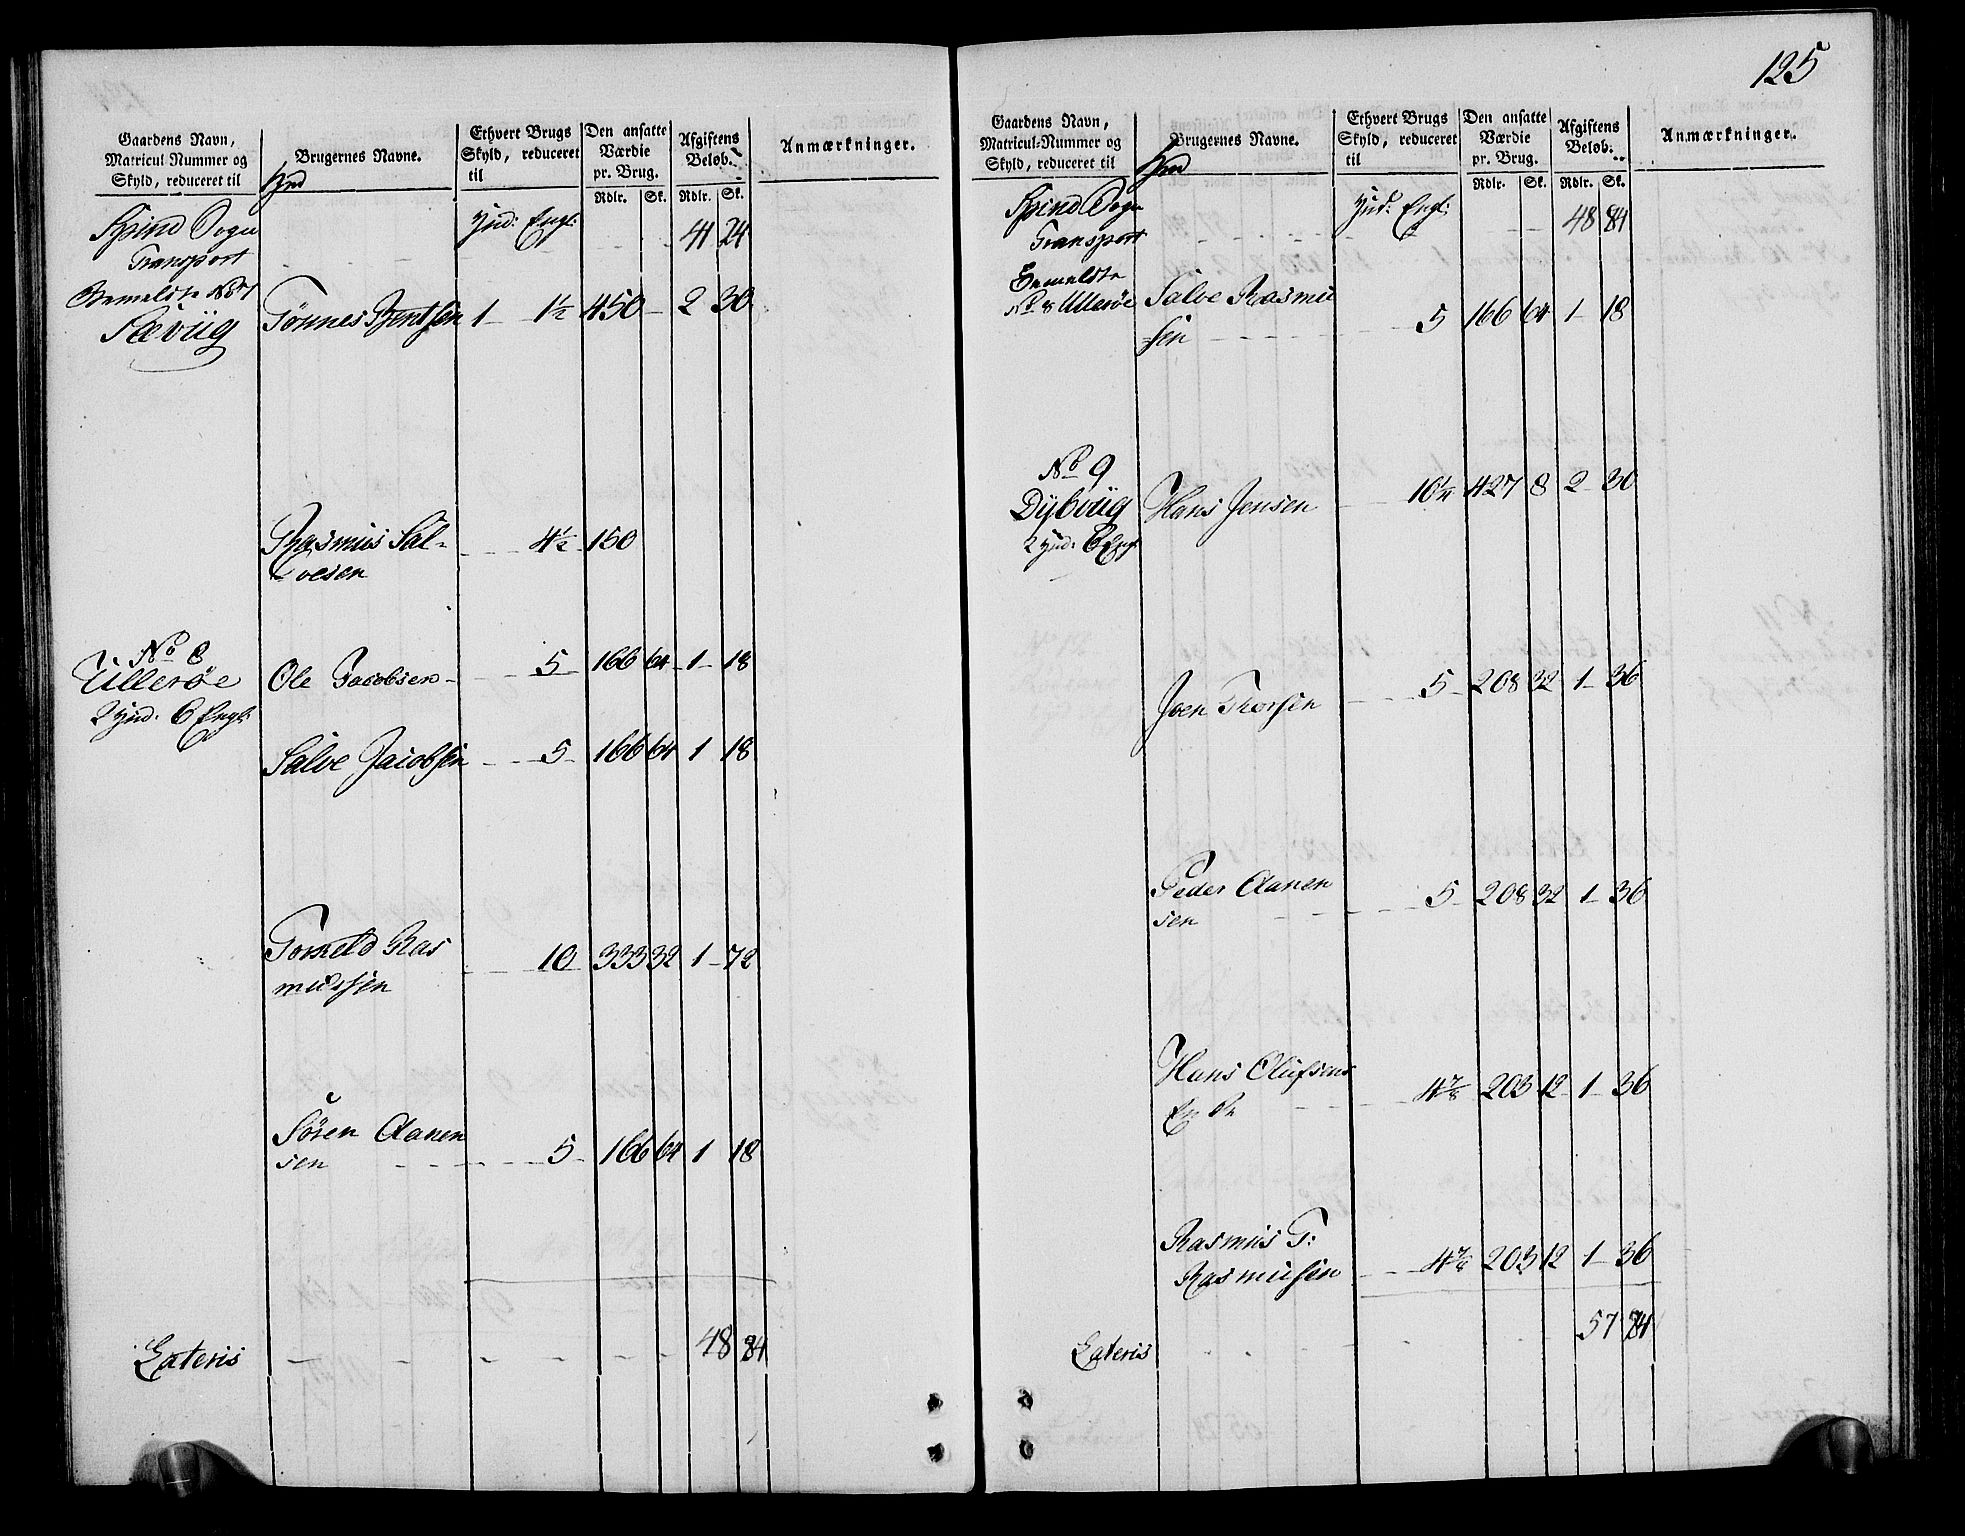 Gaardens Navn,
Matricul-Nummer og
Skyld, reduceret til
Hud
Brugernes Navne.
Ethvert Brugs
Skyld, reduceret
til
Den ansatte
Værdie
pr. Brug.
Rdlr. Sk.
Afgiftens
Beløb.
Rdlr. Sk.
Anmærkninger.
Spind Sogn
Transport
Hud: Engl: 41 24
Bemeldte No 7
Sævüg Tønnes Berntsen 1 1½ 450 2 30
Rasmus Sal-
vesen 4½ 150
No 8
Ullerøe
2 Hud: 6 Engl:
Ole Jacobsen 5 166 64 1 18
Salve Jacobsen 5 166 64 1 18
Torkeld Ras
mussen 10 333 32 1 72
Sören Aanen
sen 5 166 64 1 18
Lateris 48 84
125
Gaardens Navn,
Matricul-Nummer og
Skyld, reduceret til
Hud
Brugernes Navne.
Ethvert Brugs
Skyld, reduceret
til
Den ansatte
Værdie
pr. Brug.
Rdlr. Sk.
Afgiftens
Beløb.
Rdlr. Sk.
Anmærkninger.
Spind Sogn
Transport
Hud: Engl: 48 84
Bemeldte
No 8 Ullerøe
Salve Rasmu
sen 5 166 64 1 18
No 9
Dybvüg
2 Hud: 6 Engl:
Hans Jensen 10¼ 427 8 2 30
Joen Thorsen 5 208 32 1 36
Peder Aanen
sen 5 208 32 1 36
Hans Olufsens
Enke 4⅞ 203 12 1 36
Rasmus T:
Rasmusen 4⅞ 203 12 1 36
Lateris 57 84